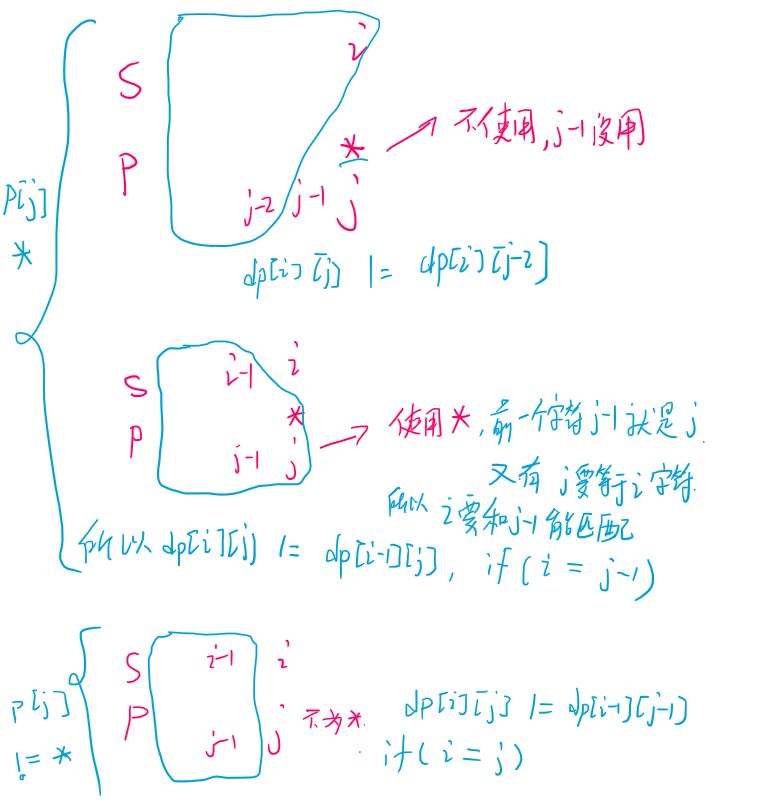 S i
P * → 不使用,j-1没用
j-2 j-1 j
P[j]
*
dp[i][j] |= dp[i][j-2]
S i-1 i
P * → 使用*,前一个字符j-1就是j.
j-1 j
又有 j要等于i字符.
所以 i要和j-1能匹配
所以 dp[i][j] |= dp[i-1][j], if(i = j-1)
S i-1 i
P j-1 j 不为*.
P[j]
!= *
dp[i][j] |= dp[i-1][j-1]
if(i = j)